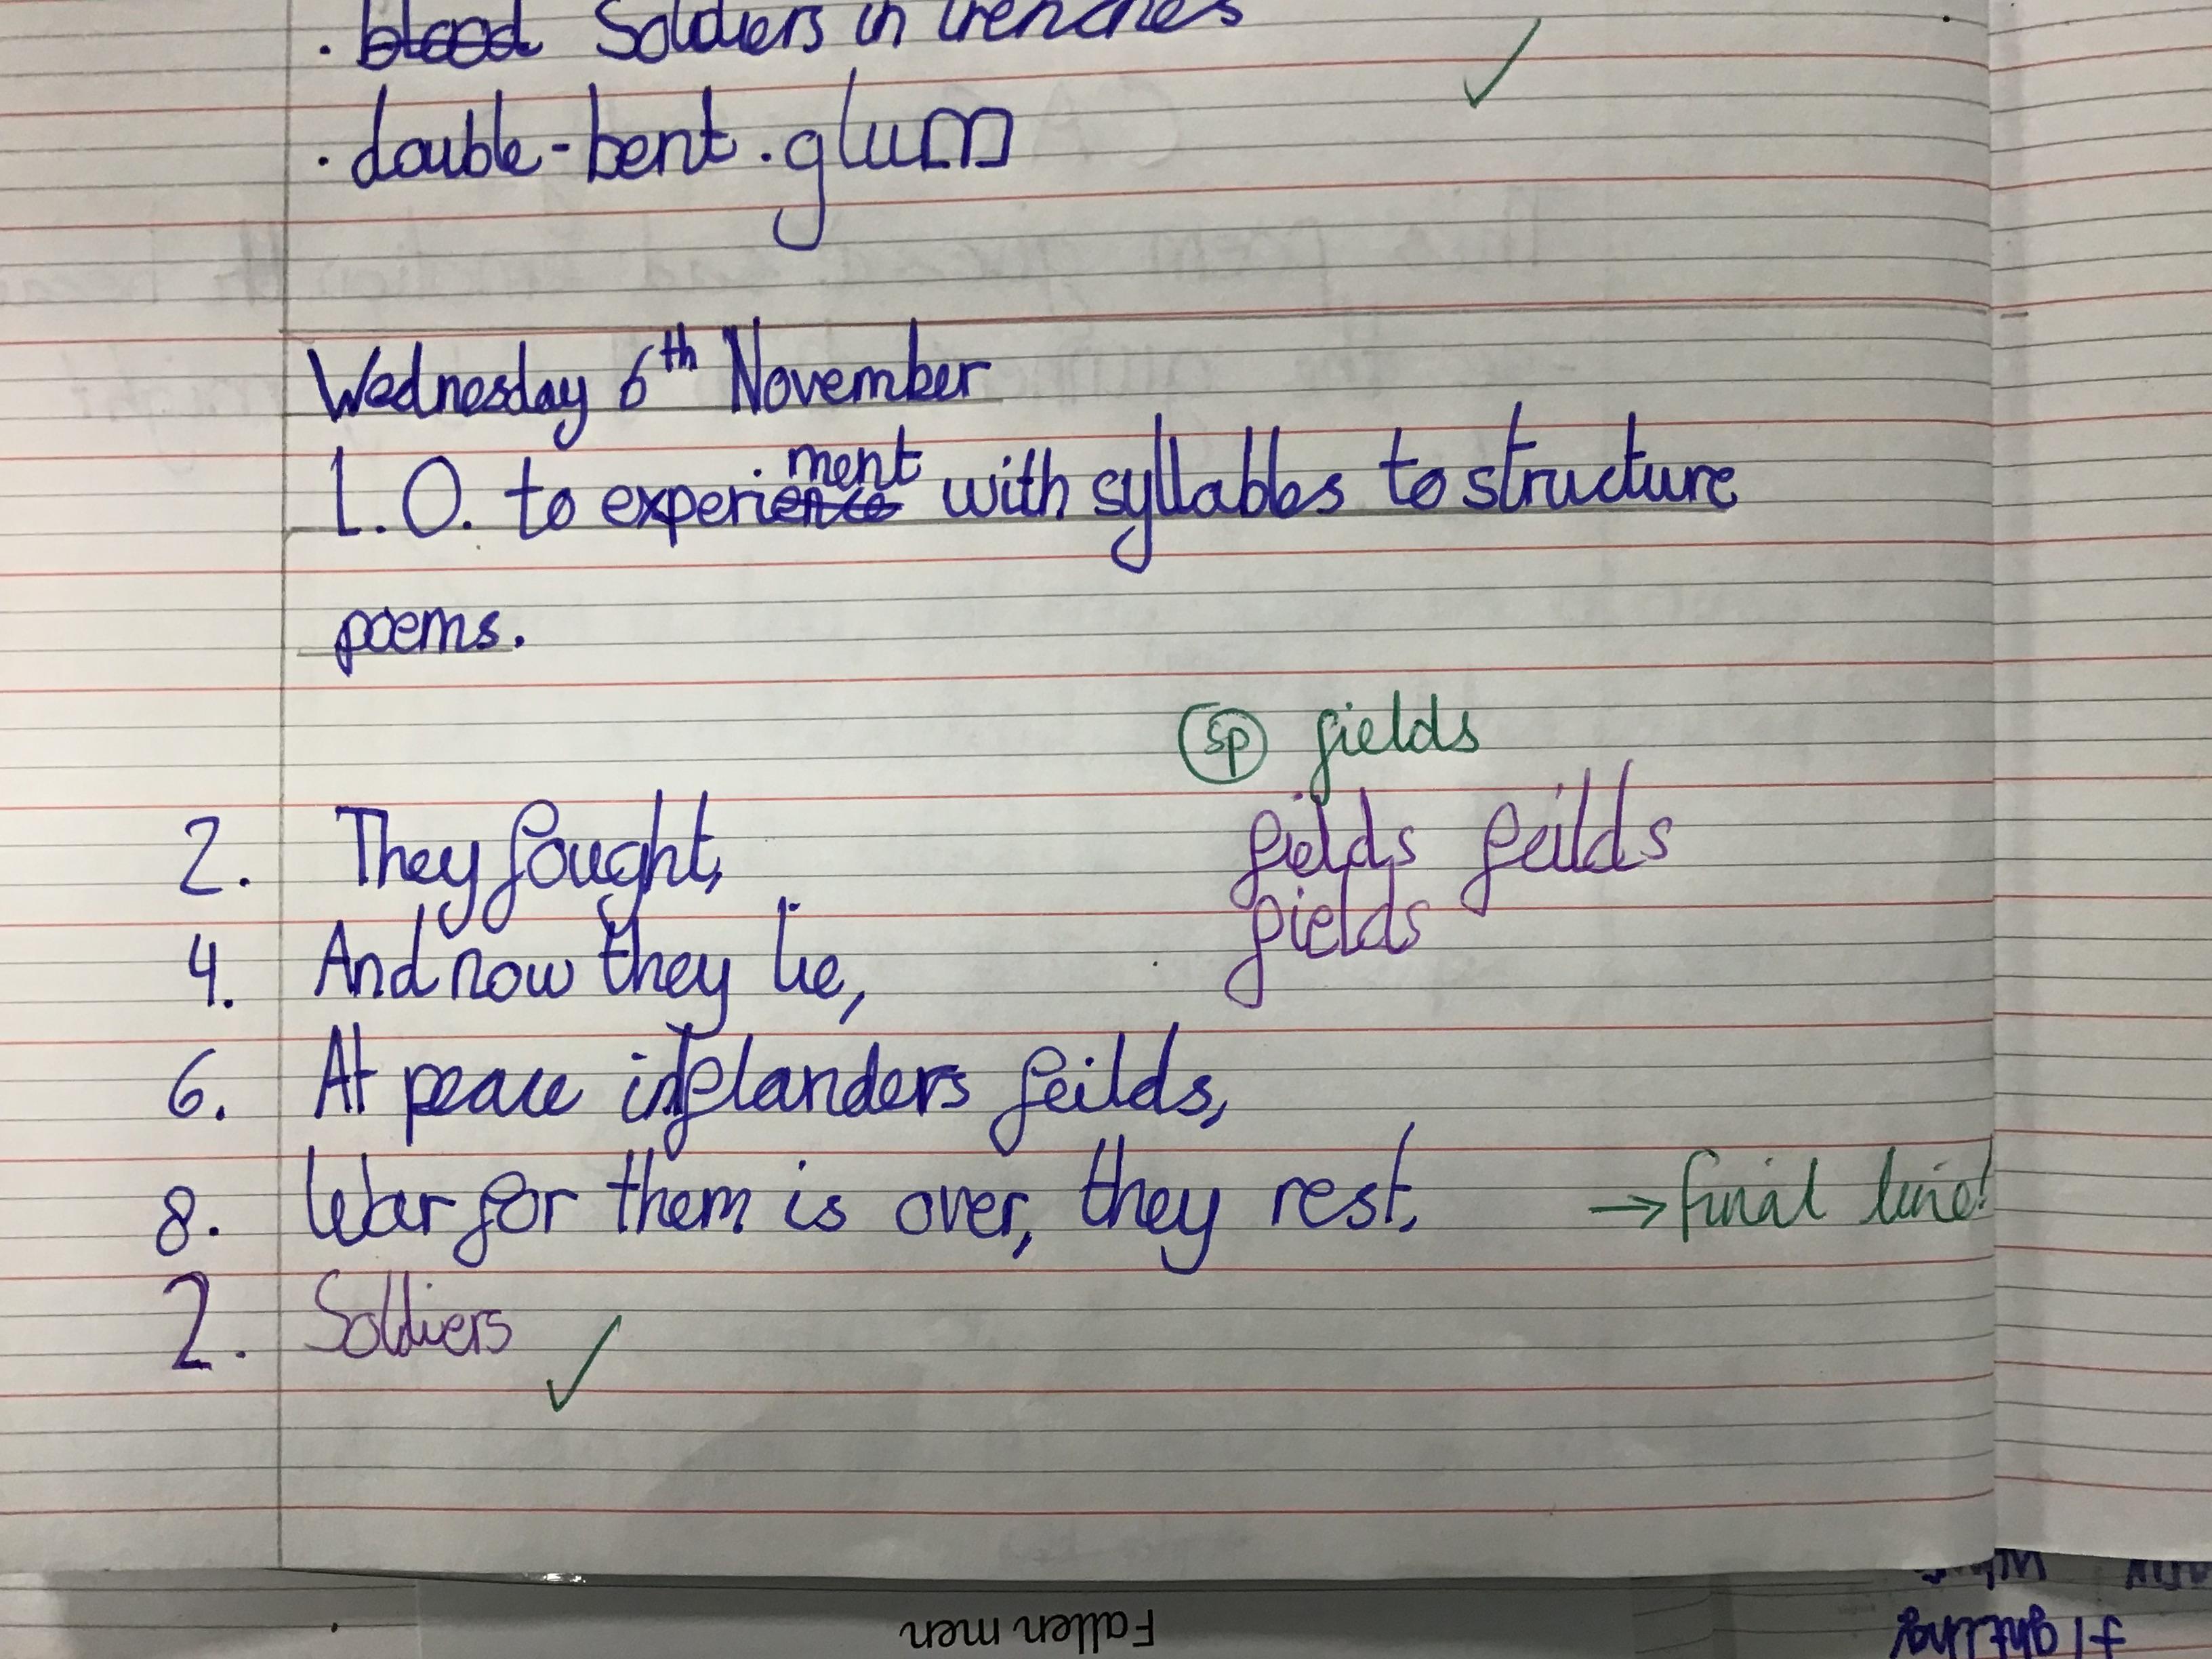 · blood Soldiers in trenches
· double-bent · glum
Wednesday 6th November
L.O. to experience ment with syllables to structure
poems.
sp fields
fields feilds
fields
2. They fought,
4. And now they lie,
6. At peace in Flanders feilds,
8. War for them is over, they rest. → final line!
2. Soldiers
Fallen men
fighting